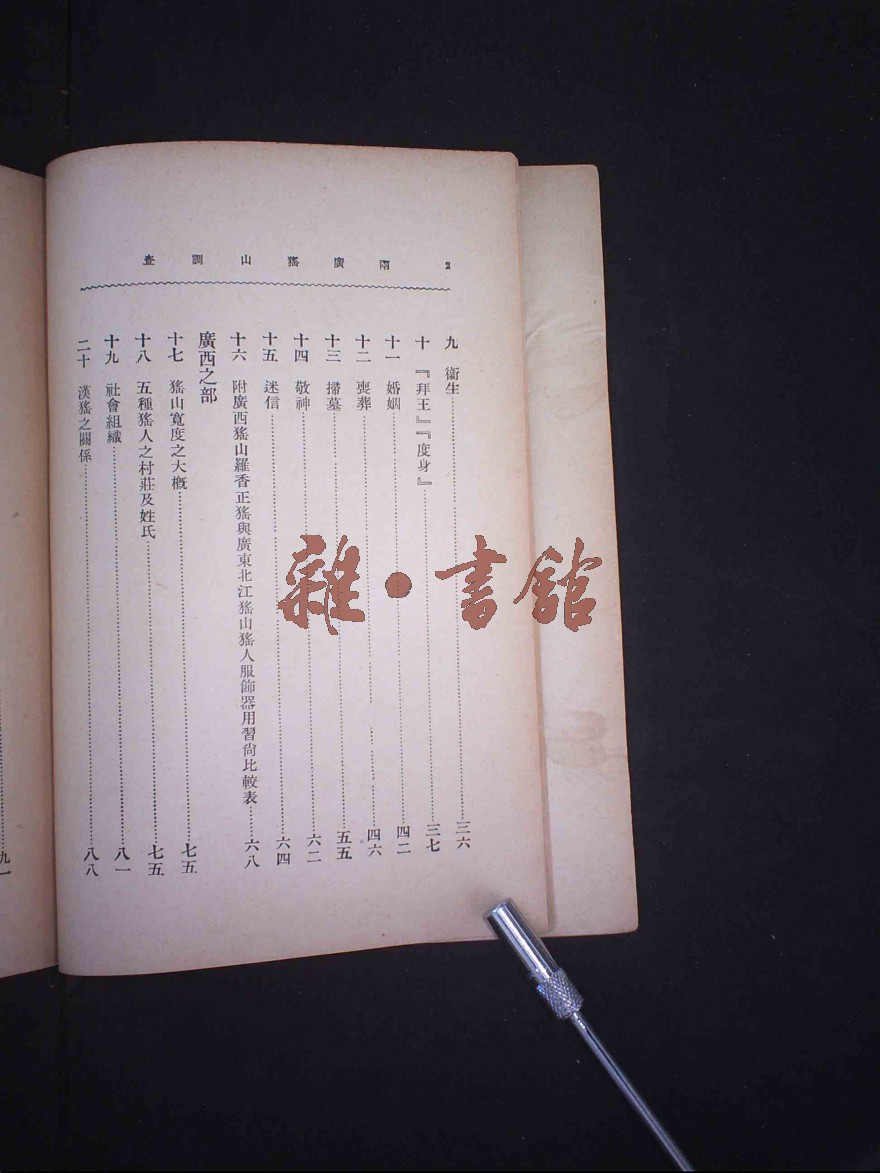 2　兩廣猺山調查
九　衞生……三六
十　『拜王』『度身』……三七
十一　婚姻……四二
十二　喪葬……四六
十三　掃墓……五五
十四　敬神……六二
十五　迷信……六四
十六　附廣西猺山羅香正猺與廣東北江猺山猺人服飾器用習尙比較表……六八
廣西之部
十七　猺山寬度之大槪……七五
十八　五種猺人之村莊及姓氏……七五
十九　社會組織……八一
二十　漢猺之關係……八八
九一
雜・書館